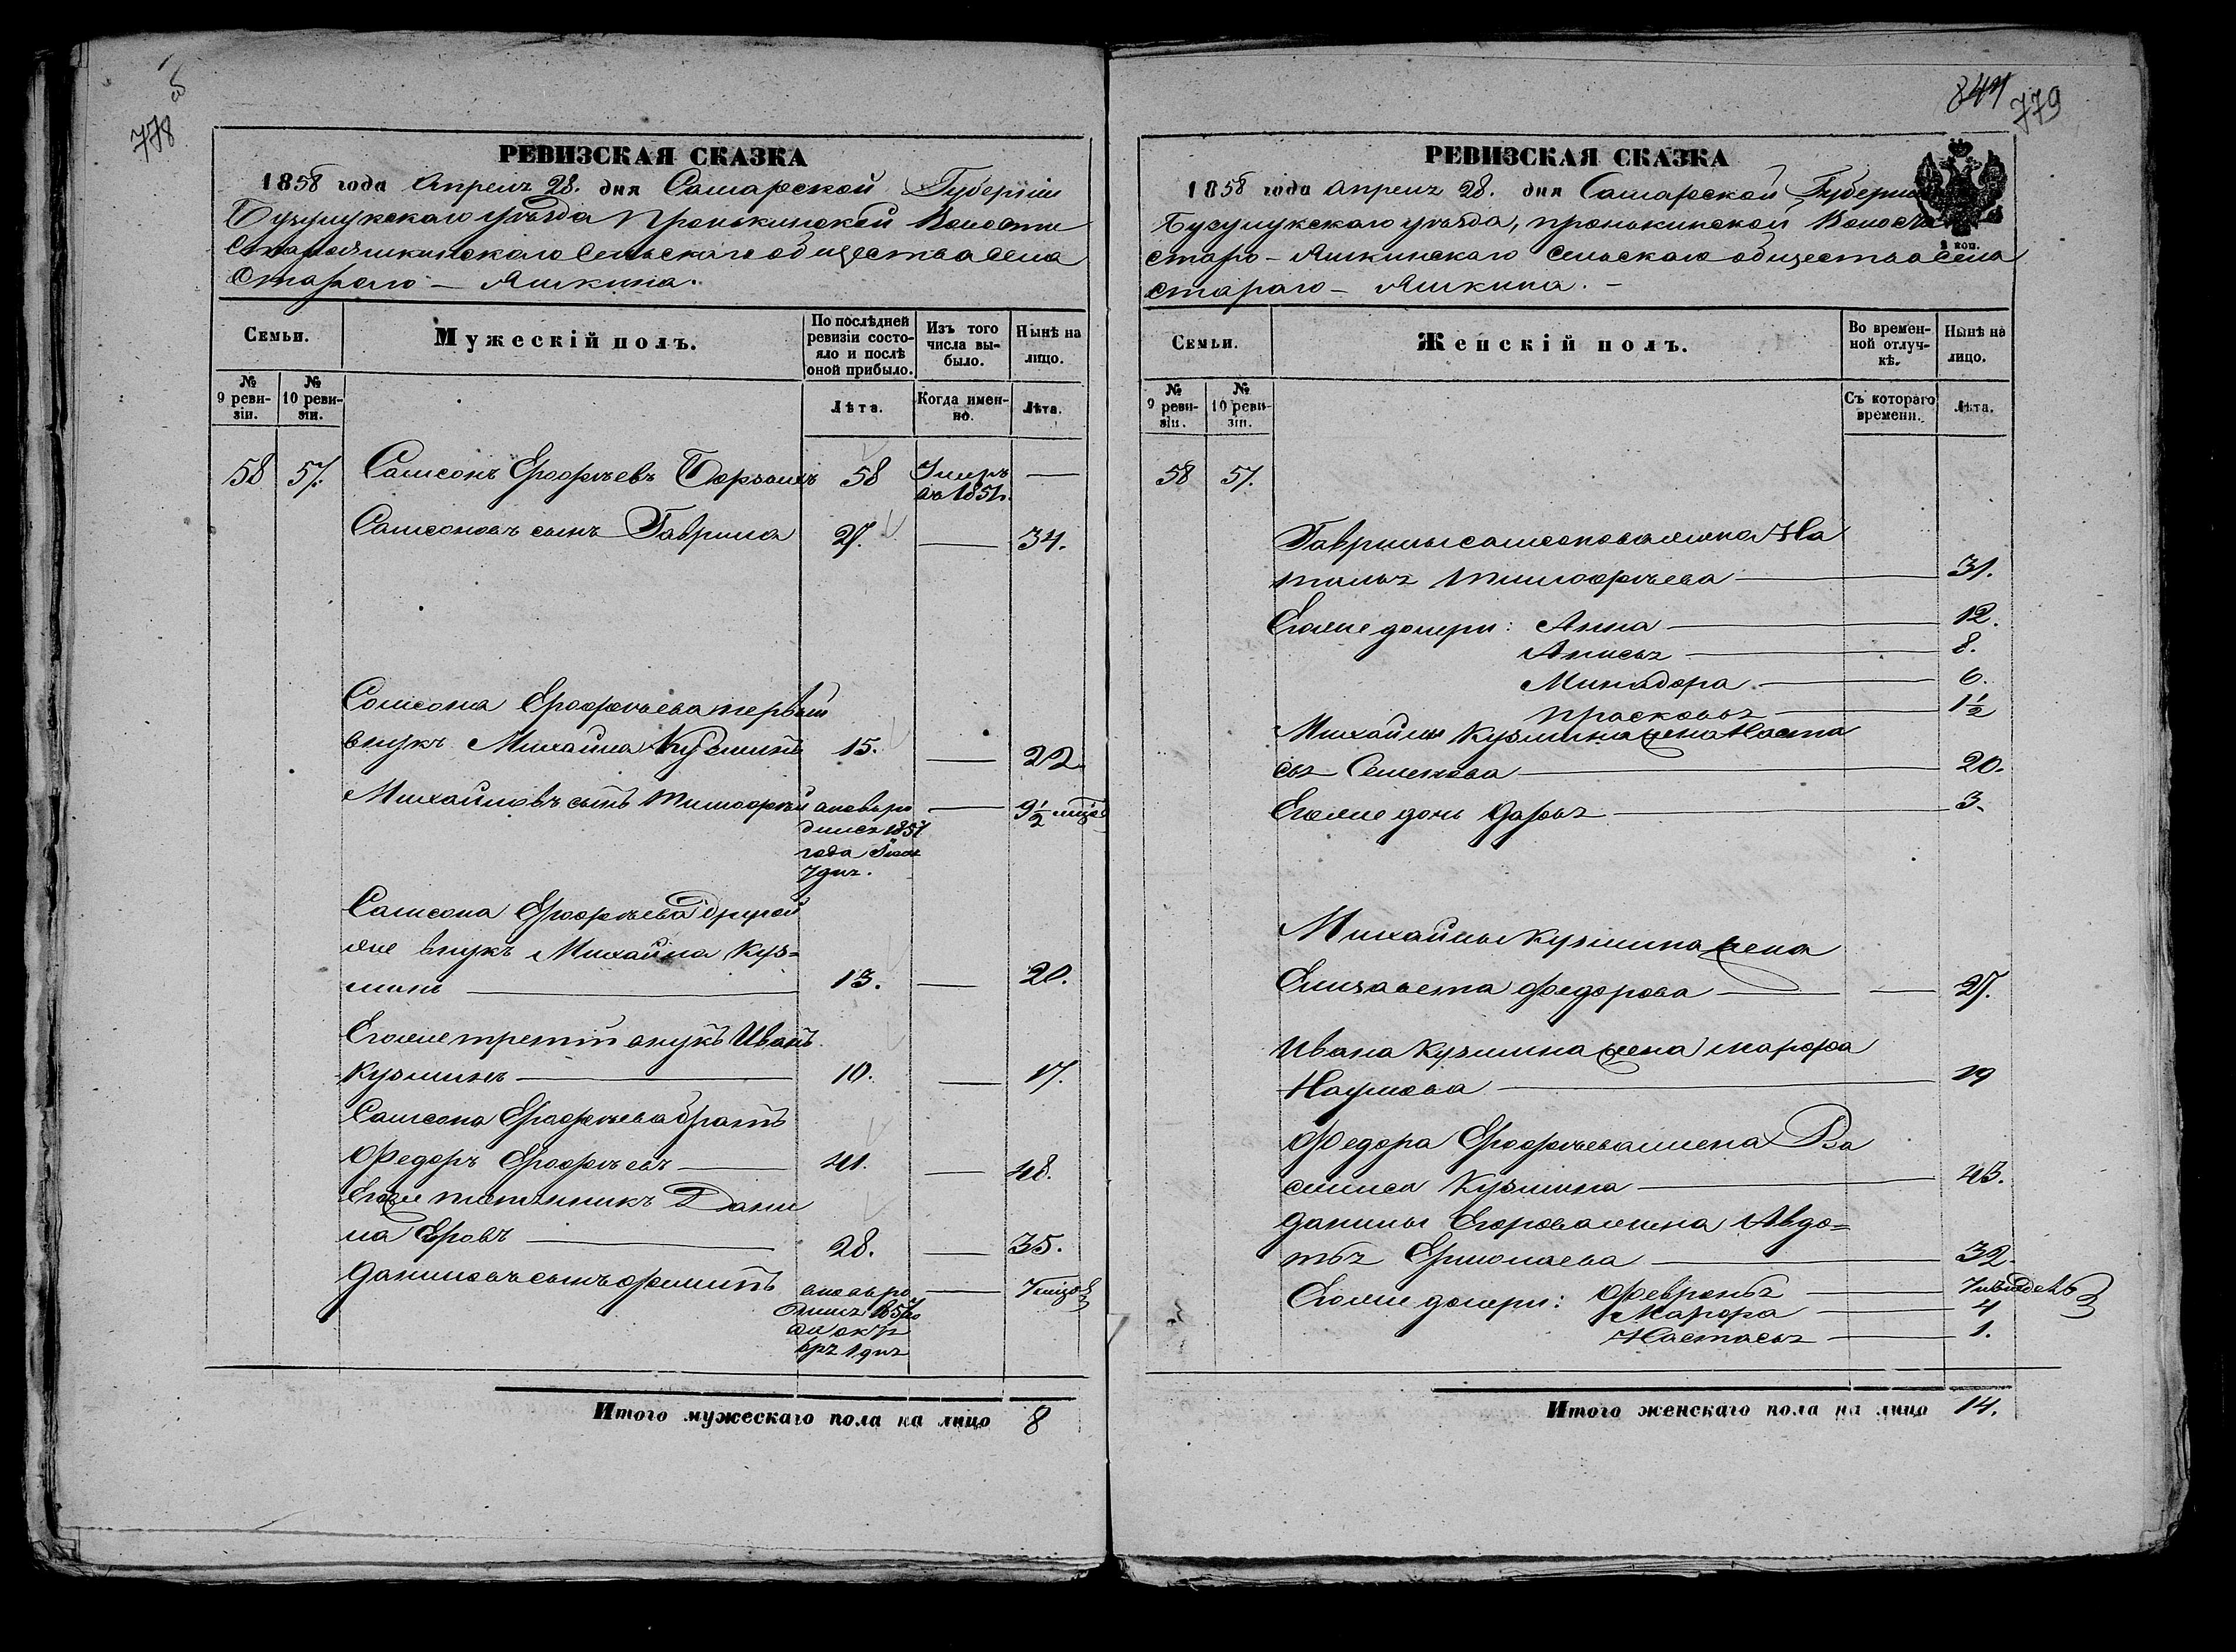 778
РЕВИЗСКАЯ СКАЗКА
1858 года Апреля 28. дня Самарской Губернiи
Бузулукскаго уѣзда Пронькинской Волости
Старояшкинскаго Сельскаго общества села
Стараго - Яшкина.
Семьи.
Мужескiй полъ.
По послѣдней ревизiи состояло и послѣ оной прибыло.
Изъ того числа выбыло.
Нынѣ на лицо.
№ 9 ревизiи.
№ 10 ревизiи.
Лѣта.
Когда именно.
Лѣта.
58 57. Самсонъ Ерофѣевъ 58 Умеръ
въ 1851г. —
Самсоновъ сынъ Гаврила 27. — 34.
Самсона Ерофѣева первый
внукъ Михайла Кузминъ 15. — 22
Михайловъ сынъ Тимофѣй вновь ро — 9½ мѣсяц
дился 1857
года
7 дня.
Самсона Ерофѣева другой
же внукъ Михайла Куз=
минъ — 13. — 20.
Егоже третiй внукъ Иванъ
Кузминъ — 10. — 17.
Самсона Ерофѣева братъ
Федоръ Ерофѣевъ — 41. — 48.
Данн
ла — 28. — 35.
Даниловъ сынъ Филипъ вновь ро —
дился 1857го
октя
бря 1 дня
Итого мужескаго пола на лицо 8
844 779
РЕВИЗСКАЯ СКАЗКА
1858 года апреля 28. дня Самарской Губернiи
Бузулукскаго уѣзда, пронькинской Волости
старо - Яшкинскаго сельскаго общества села
стараго - Яшкина. -
коп.
Семьи.
Женскiй полъ.
Во временной отлучкѣ.
Нынѣ на лицо.
№ 9 ревизiи.
№ 10 ревизiи.
Съ котораго времени.
Лѣта.
58 57.
Гаврилы самсонова жена На
талья тимофѣева — 31.
Егоже дочери: Анна — 12.
Анисья — 8.
Минадора — 6.
прасковья — 1½
Михайлы Кузмина жена Наста
сья Семенова — 20.
Егоже дочь Дарья — 3.
Михайлы Кузмина жена
Елизавета Федорова — — 27.
Ивана Кузмина жена марфа
Наумова — 19
Федора Ерофѣева жена Ва
силиса Кузмина — 43.
данилы Егорова жена Авдо=
тья Ермолаева — 32.
Егоже дочери: Февронья —
Марфа — 4
Настасья — 1.
Итого женскаго пола на лицо 14.